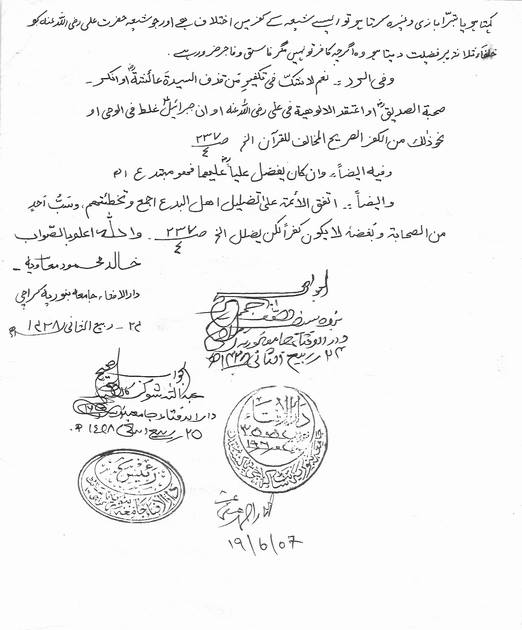 کہتا ہو یا تبرا بازی وغیرہ کرتا ہو تو ایسے شیعہ کے کفر میں اختلاف ہے اور جو شیعہ حضرت علی رضی اللہ عنہ کو
خلفاء ثلاثہ پر فضیلت دیتا ہو وہ اگرچہ کافر تو نہیں مگر فاسق و فاجر ضرور ہے۔
وفی الرد :۔ نعم لاشک فی تکفیر من قذف السیدۃ عائشۃؓ او انکر۔
صحبۃ الصدیقؓ او اعتقد الالوہیۃ فی علی رضی اللہ عنہ او ان جبرائیل غلط فی الوحی او
نحو ذلک من الکفر الصریح المخالف للقرآن الخ ص ۲۳۷/۴
وفیہ ایضاً :۔ وان کان یفضل علیاً علیہما فھو مبتدع اھ
وایضاً :۔ اتفق الأئمۃ علی تضلیل اھل البدع اجمع وتخطئتھم، وسب أحدٍ
من الصحابۃ وبغضہ لا یکون کفراً لکن یضلل الخ ص ۲۳۷/۴ ۔ واللہ اعلم بالصواب
خالد محمود معاویہ۔
دار الافتاء جامعہ بنوریہ کراچی
۲۳ - ربیع الثانی ۱۴۲۸ھ
الجواب صحیح
دار الافتاء جامعہ بنوریہ
۲۴ ربیع الثانی ۱۴۲۸ھ
الجواب صحیح
عبد اللہ شوکت
دار الافتاء جامعہ بنوریہ
۲۵ ربیع الثانی ۱۴۲۸ھ
دار الافتاء
رئیس
دار الافتاء جامعہ بنوریہ
۱۹/۶/۰۷